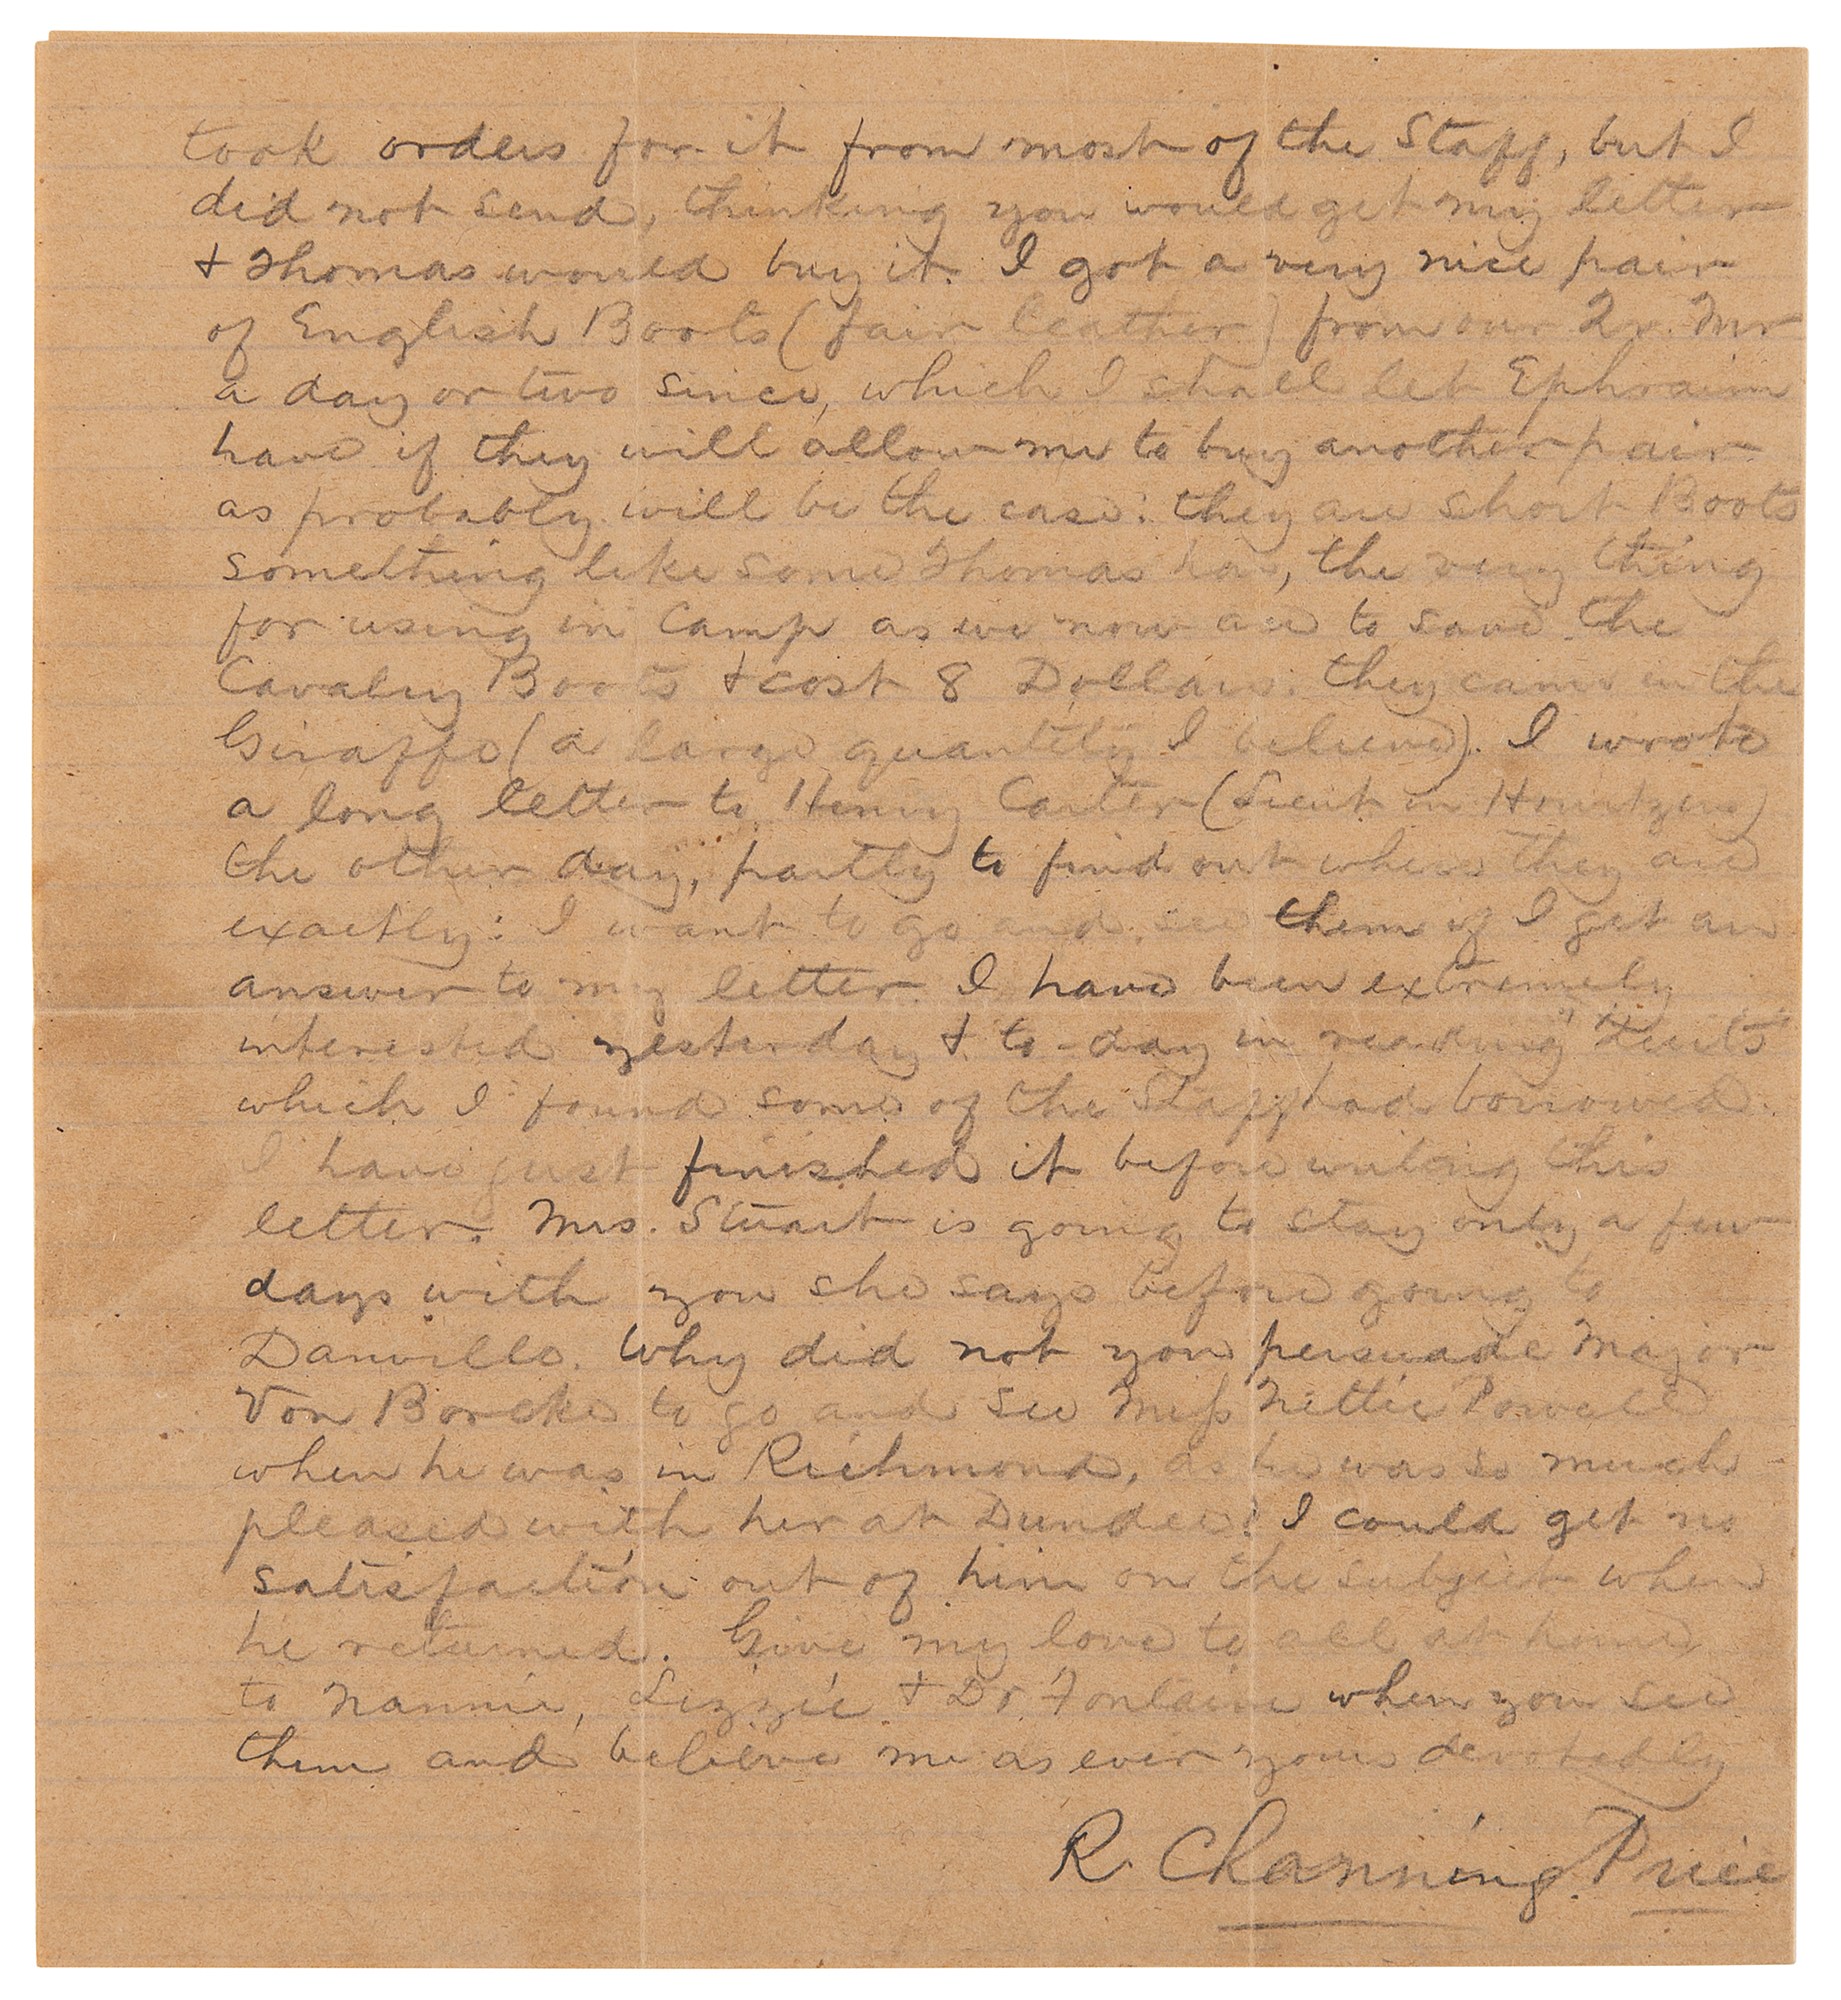 took orders for it from most of the Staff, but I
did not send, thinking you would get my letter
& Thomas would buy it. I got a very nice pair
of English Boots (fair leather) from our Qr. Mr
a day or two since, which I shall let Ephraim
have if they will allow me to buy another pair
as probably will be the case: they are short Boots
something like some Thomas has, the very thing
for using in Camp as we now are to save the
Cavalry Boots & cost 8 Dollars. they came in the
Giraffe (a large quantity I believe). I wrote
a long letter to Henry Carter (Lieut in Howitzers)
the other day, partly to find out where they are
exactly: I want to go and see them if I get an
answer to my letter. I have been extremely
interested yesterday & to-day in reading
which I found some of the Staff had borrowed.
I have just finished it before writing this
letter. Mrs. Stuart is going to stay only a few
days with you she says before going to
Danville. Why did not you persuade Major
Von Borcke to go and see Miss Nettie Powell
when he was in Richmond, as he was so much
pleased with her at Dundee? I could get no
satisfaction out of him on the subject when
he returned. Give my love to all at home
to Nannie, Lizzie & Dr. Fontaine when you see
them and believe me as ever yours devotedly
R. Channing Price